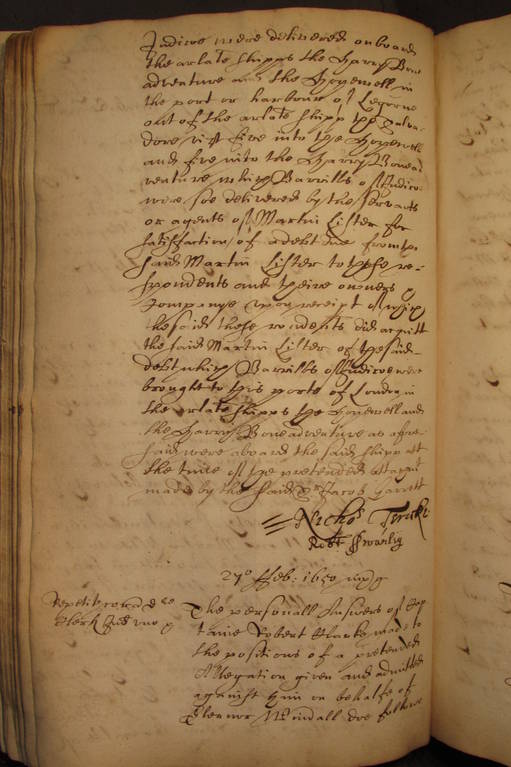 Indico were delivered onboard
the arlate shipps the Harry Bon
adventure and the Hopewell in
the port or harbour of Legorne
out of the arlate shipp the Salva-
dore, vizt five into the Hopewell
and five into the Harry Bonead
venture which Barrills of Indico
were soe delivered by the servants
or agents of Martin Lister for
satisfaction of a debt due from the
said Martin Lister to these re-
spondents and theire owners
Companye upon receipt of which
the said these rendents did acquitt
the said Martin Lister of the said
debt which Barrills of Indicoe were
brought to this porte of London in
the arlate shipps the Hopewell and
the Harry Boneadventure as afore
said were aboard the said shipp att
the time of the pretended attempt
made by the said Jacob Garrett
Nicho: Terrick
Robt Swanley
27o Feb: 1650
Repetit coram
Clerk
The personall Answers of Cap
taine Robert Clarke made to
the positions of a pretended
Allegation given and admitted
against him on behalfe of
Elenor Kendall doe followe